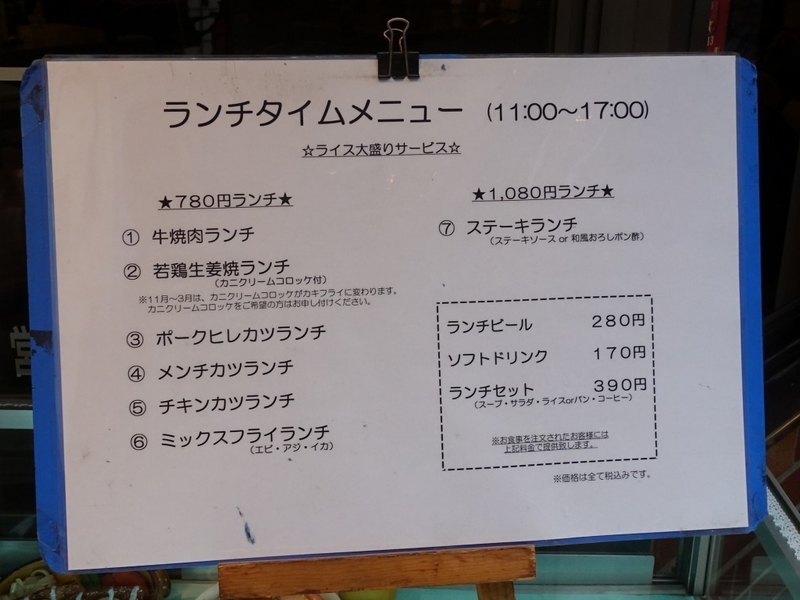 ランチタイムメニュー (11:00～17:00)
☆ライス大盛りサービス☆
★780円ランチ★
① 牛焼肉ランチ
② 若鶏生姜焼ランチ
(カニクリームコロッケ付)
※11月～3月は、カニクリームコロッケがカキフライに変わります。
カニクリームコロッケをご希望の方はお申し付けください。
③ ポークヒレカツランチ
④ メンチカツランチ
⑤ チキンカツランチ
⑥ ミックスフライランチ
(エビ・アジ・イカ)
★1,080円ランチ★
⑦ ステーキランチ
(ステーキソース or 和風おろしポン酢)
ランチビール 280円
ソフトドリンク 170円
ランチセット 390円
(スープ・サラダ・ライスorパン・コーヒー)
※お食事を注文されたお客様には
上記料金で提供致します。
※価格は全て税込みです。
営